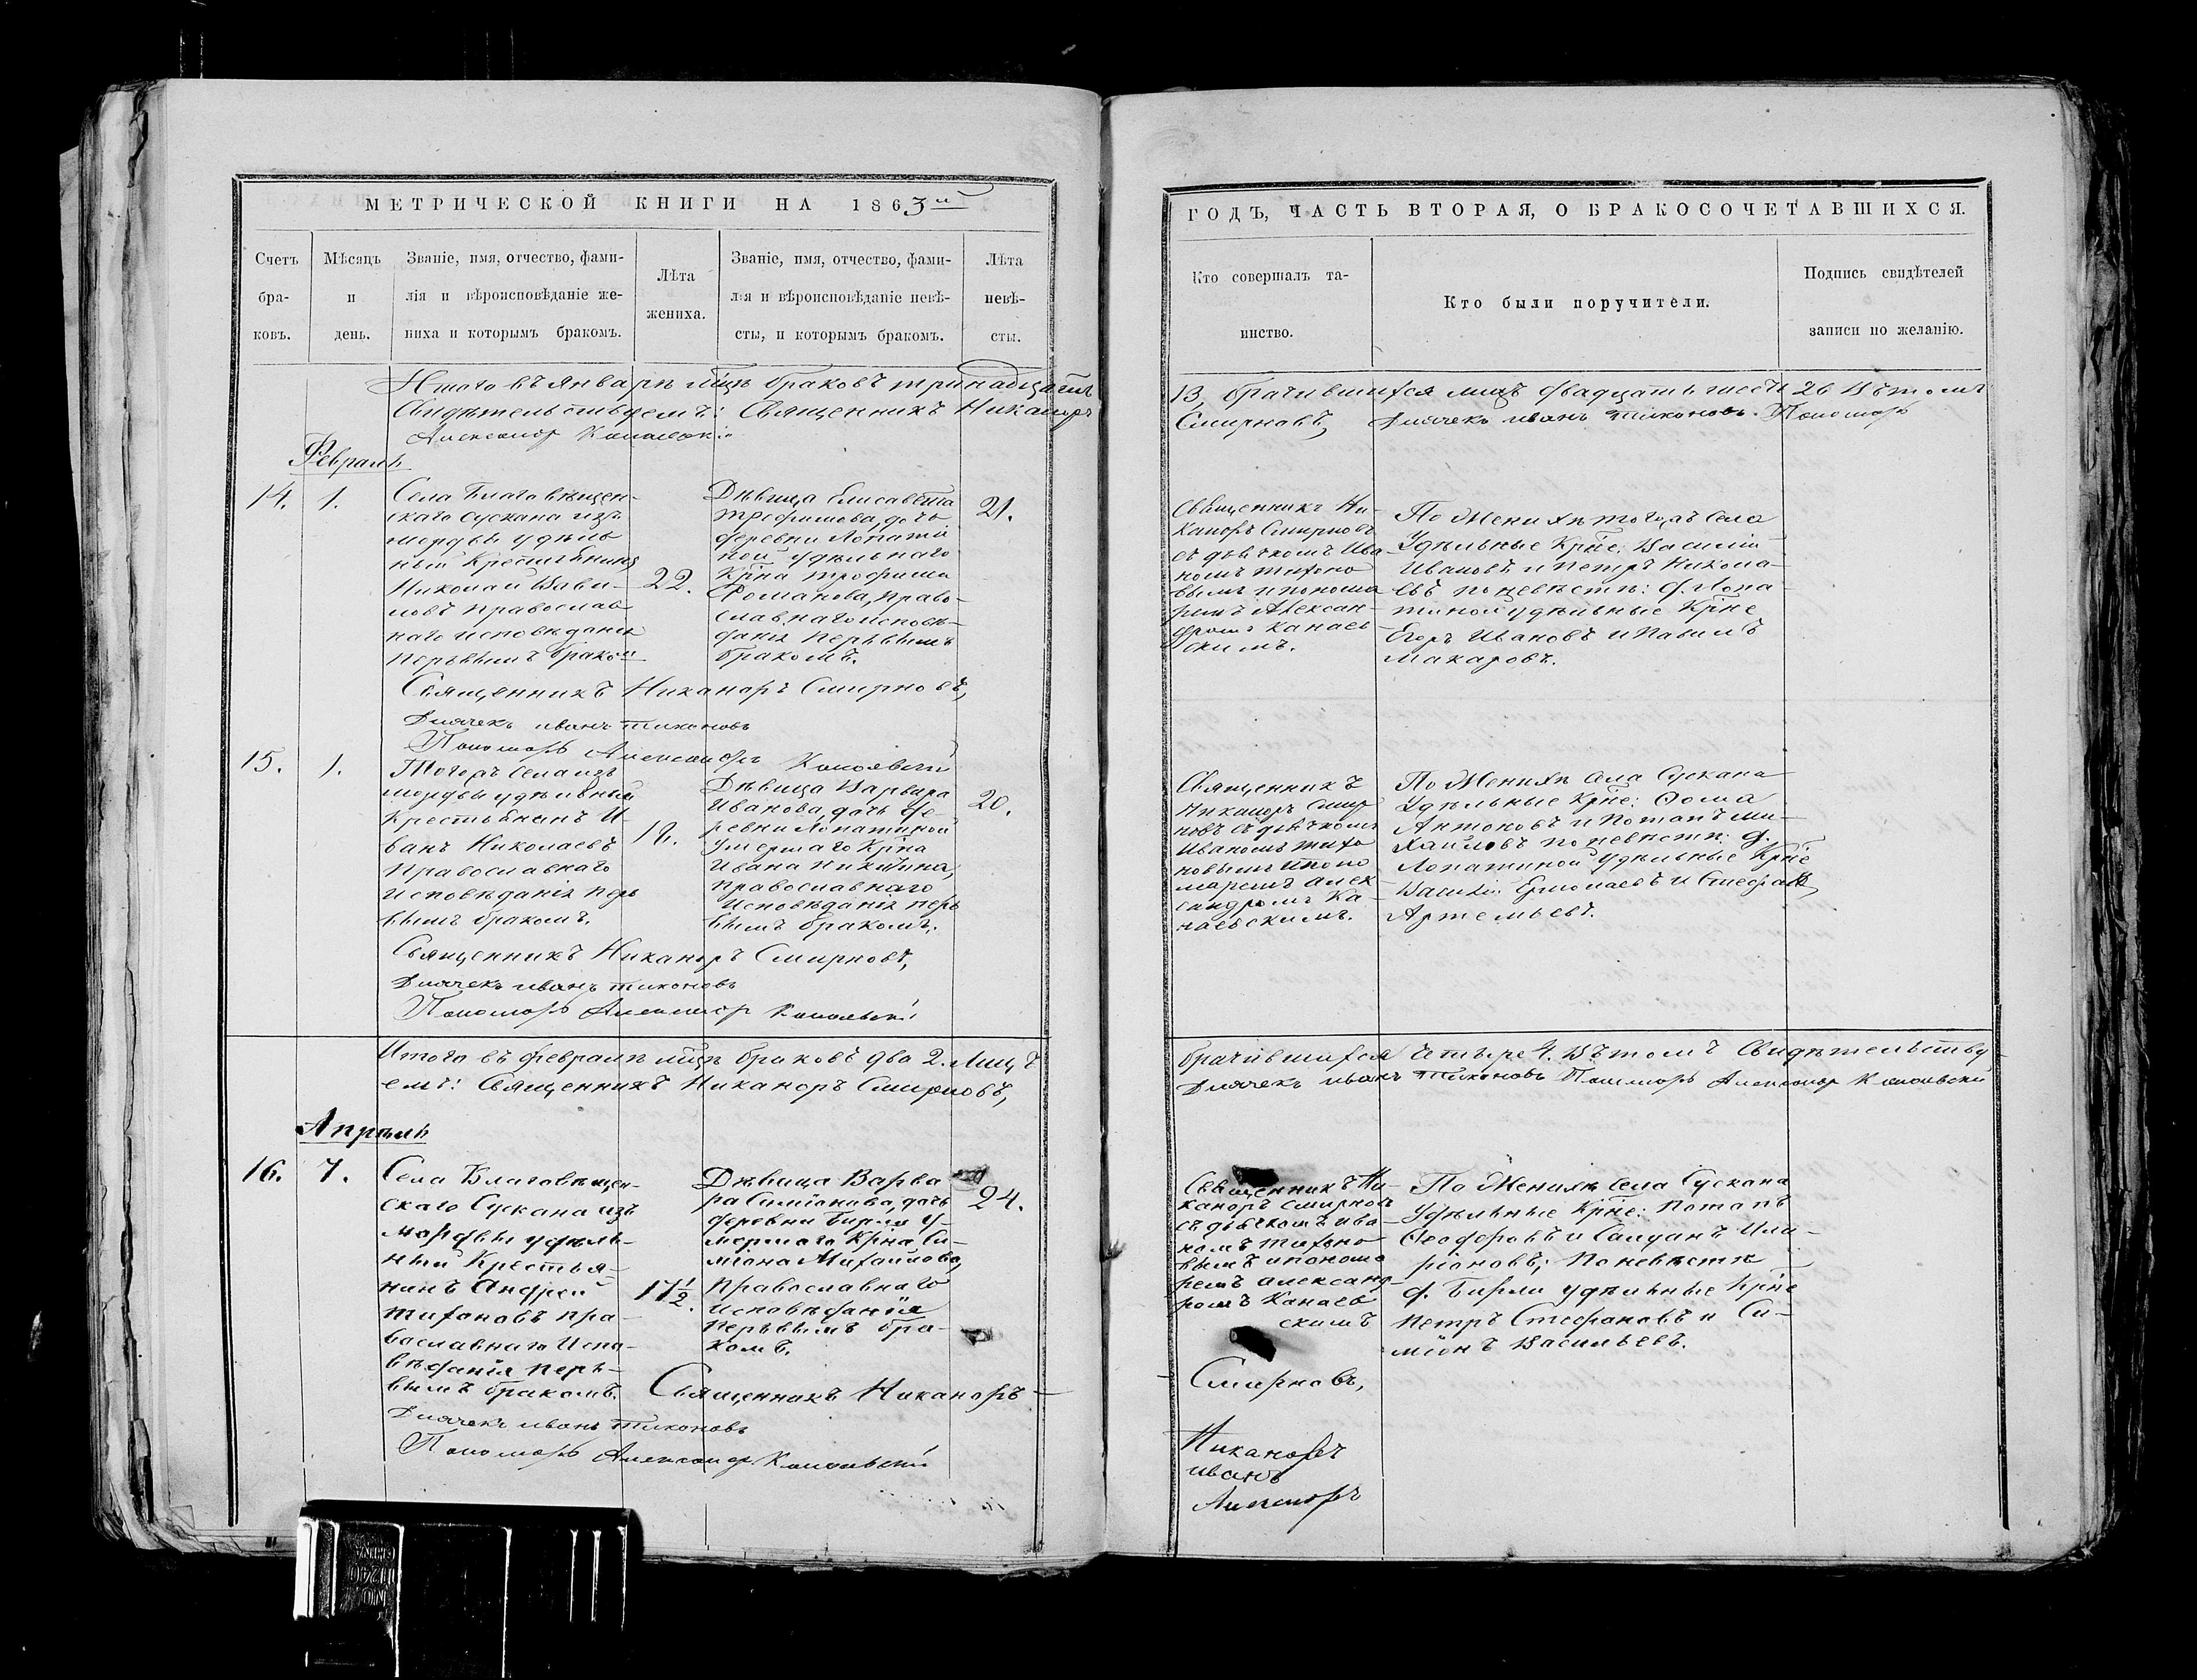 МЕТРИЧЕСКОЙ КНИГИ НА 1863й
Счетъ бра- ковъ.
Мѣсяцъ и день.
Званіе, имя, отчество, фами-
лія и вѣроисповѣданіе же-
ниха и которымъ бракомъ.
Лѣта
жениха.
Званіе, имя, отчество, фами-
лія и вѣроисповѣданіе невѣ-
сты, и которымъ бракомъ.
Лѣта
невѣ-
сты.
Итого въ Январѣ мцѣ браковъ тринадцать
Свидѣтельствуемъ: Священникъ Никаноръ
Александр
Февраль
14. 1.
Села Благовѣщен-
скаго Сускана изъ
мордвы удѣль
ный Крестьянинъ
Николай Вави-
ловъ православ
наго исповѣданія
первымъ бракомъ
22.
Дѣвица Елисавета
Трофимова, дочь
деревни Лопати
ной удѣльнаго
Крна Трофима
Романова, Право-
славнаго исповѣ-
данія первымъ
бракомъ.
21.
Священникъ Никаноръ Смирновъ,
Дьячекъ Иванъ Тихоновъ
Пономарь Александръ Канаевскій
15. 1.
Тогожъ Села изъ
мордвы удѣльный
Крестьянинъ И
ванъ Николаевъ
Православнаго
исповѣданія пер
вымъ бракомъ.
18.
Дѣвица Варвара
Иванова, дочь де-
ревни Лопатиной
умершаго Крна
Ивана Никитина,
православнаго
исповѣданія пер
вымъ бракомъ.
20.
Священникъ Никаноръ Смирновъ,
Дьячекъ Иванъ Тихоновъ
Пономарь Александр Канаевскій
Итого въ февралѣ мцѣ браковъ два 2. Лицъ
емъ: Священникъ Никаноръ Смирновъ,
Апрѣль
16. 7.
Села Благовѣщен-
скаго Сускана изъ
мордвы удѣль-
ный Крестья-
нинъ Андрей
Тихоновъ пра-
вославнаго Испо-
вѣданія пер-
вымъ бракомъ.
17½.
Дѣвица Варва
ра Симіонова, дочь
деревни Бирли у-
мершаго Крна Си-
міона Михайлова,
Православнаго
исповѣданія
первымъ бра-
комъ.
24.
Священникъ Никаноръ
Дьячекъ Иванъ Тихоновъ
Пономарь Александр Канаевскій
ГОДЪ, ЧАСТЬ ВТОРАЯ, О БРАКОСОЧЕТАВШИХСЯ.
Кто совершалъ та-
инство.
Кто были поручители.
Подпись свидѣтелей
записи по желанію.
13, брачившихся лицъ двадцать шесть 26 Вътомъ
Смирновъ, Дьячекъ Иванъ Тихоновъ. Пономарь
Священникъ Ни-
каноръ Смирновъ
съ дьячкомъ Ива
номъ Тихоно
вымъ и понома
ремъ Алексан-
дромъ Канаев
скимъ.
По Женихѣ тогожъ Села
Удѣльные Крне: Василій
Ивановъ и Петръ Никола-
евъ по невѣстѣ: д. Лопа-
тиной удѣльные Крне
Егоръ Ивановъ и Павилъ
Макаровъ.
Священникъ
Никаноръ Смир
новъ съ дьячкомъ
Иваномъ Тихо
новымъ и поно
маремъ Алек
сандромъ Ка-
наевскимъ.
По Женихѣ села Сускана
Удѣльные Крне: Ѳома
Антоновъ и Потапъ Ми-
хайловъ по невѣстѣ: д.
Лопатиной удѣльные Крне
Василій Ермолаевъ и Стефанъ
Артемьевъ.
брачившихся четыре 4. Вътомъ Свидѣтельству-
Дьячекъ Иванъ Тихоновъ Пономарь Александр Канаевскій
Священникъ Ни-
каноръ Смирновъ
съ дьячкомъ Ива-
номъ Тихоно-
вымъ и понома
ремъ Александ-
ромъ Канаев
скимъ
По Женихѣ Села Сускана
Удѣльные Крне: Потапъ
Ѳеодоровъ и Илла-
ріоновъ; По невѣстѣ
д. Бирли удѣльные Крне
Петръ Стефановъ и Си-
міонъ Васильевъ.
Смирновъ,
Никаноръ
Иванъ
Александръ